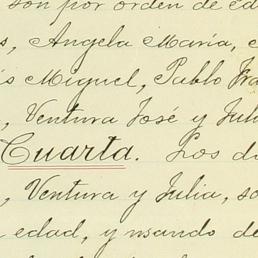 son por orden de ed
s, Angela María,
is Miguel, Pablo Fra
, Ventura José y Juli
Cuarta. Los d
, Ventura y Julia, so
edad, y usando de